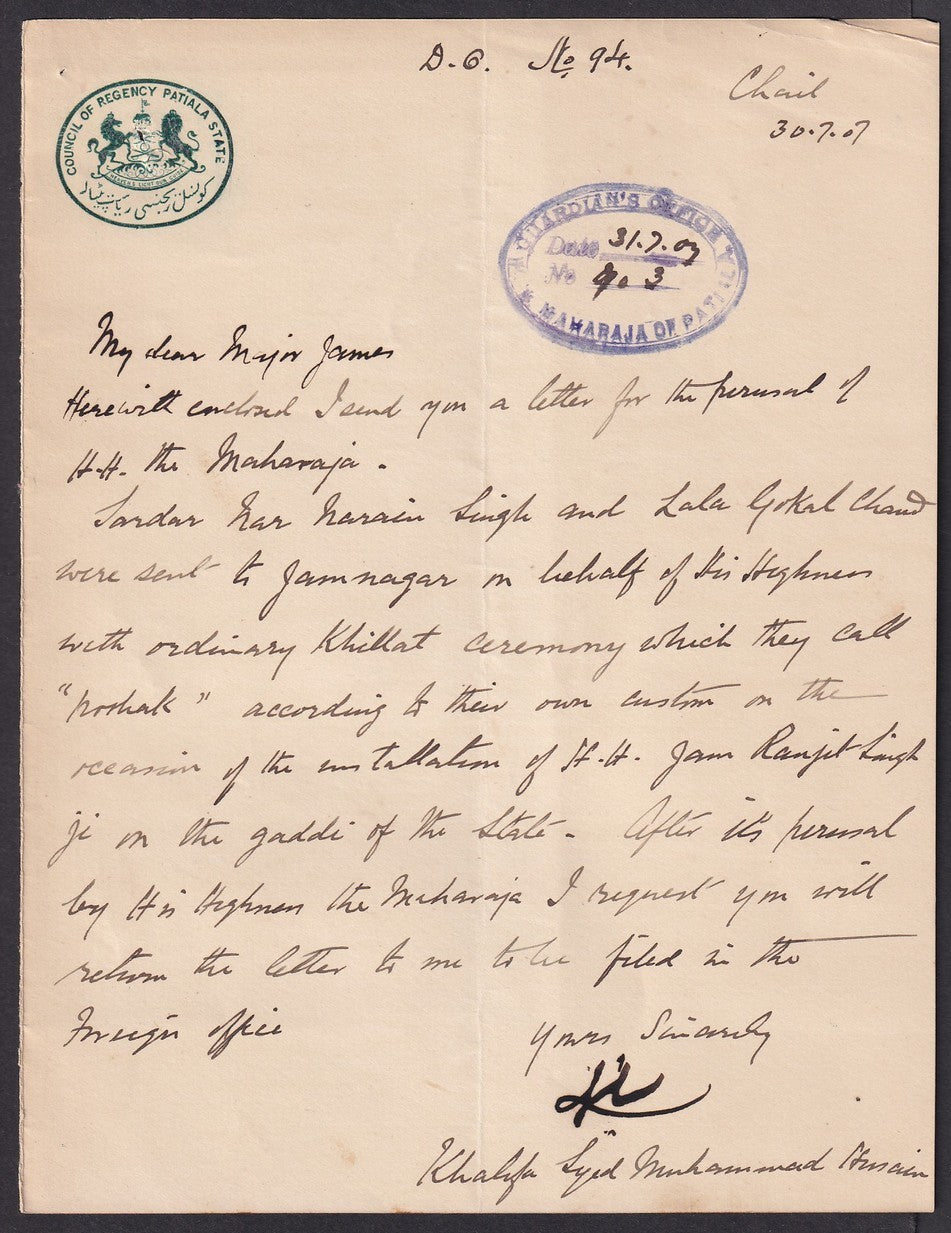 D.O. No 94.
Chail
30.7.07
COUNCIL OF REGENCY PATIALA STATE
HEAVEN'S LIGHT OUR GUIDE
کونسل ریجنسی ریاست پٹیالہ
GUARDIAN'S OFFICE
Date 31.7.07
No 903
MAHARAJA OF PATIALA
My dear Major James
Herewith enclosed I send you a letter for the perusal of
H.H. the Maharaja.
Sardar Nar Narain Singh and Lala Gokal Chand
were sent to Jamnagar on behalf of His Highness
with ordinary Khillat ceremony which they call
"poshak" according to their own custom on the
occasion of the installation of H.H. Jam Ranjit Singh
ji on the gaddi of the State. After it's perusal
by His Highness the Maharaja I request you will
return the letter to me to be filed in the
Foreign office
Yours Sincerely
Khalifa Syed Muhammad Husain